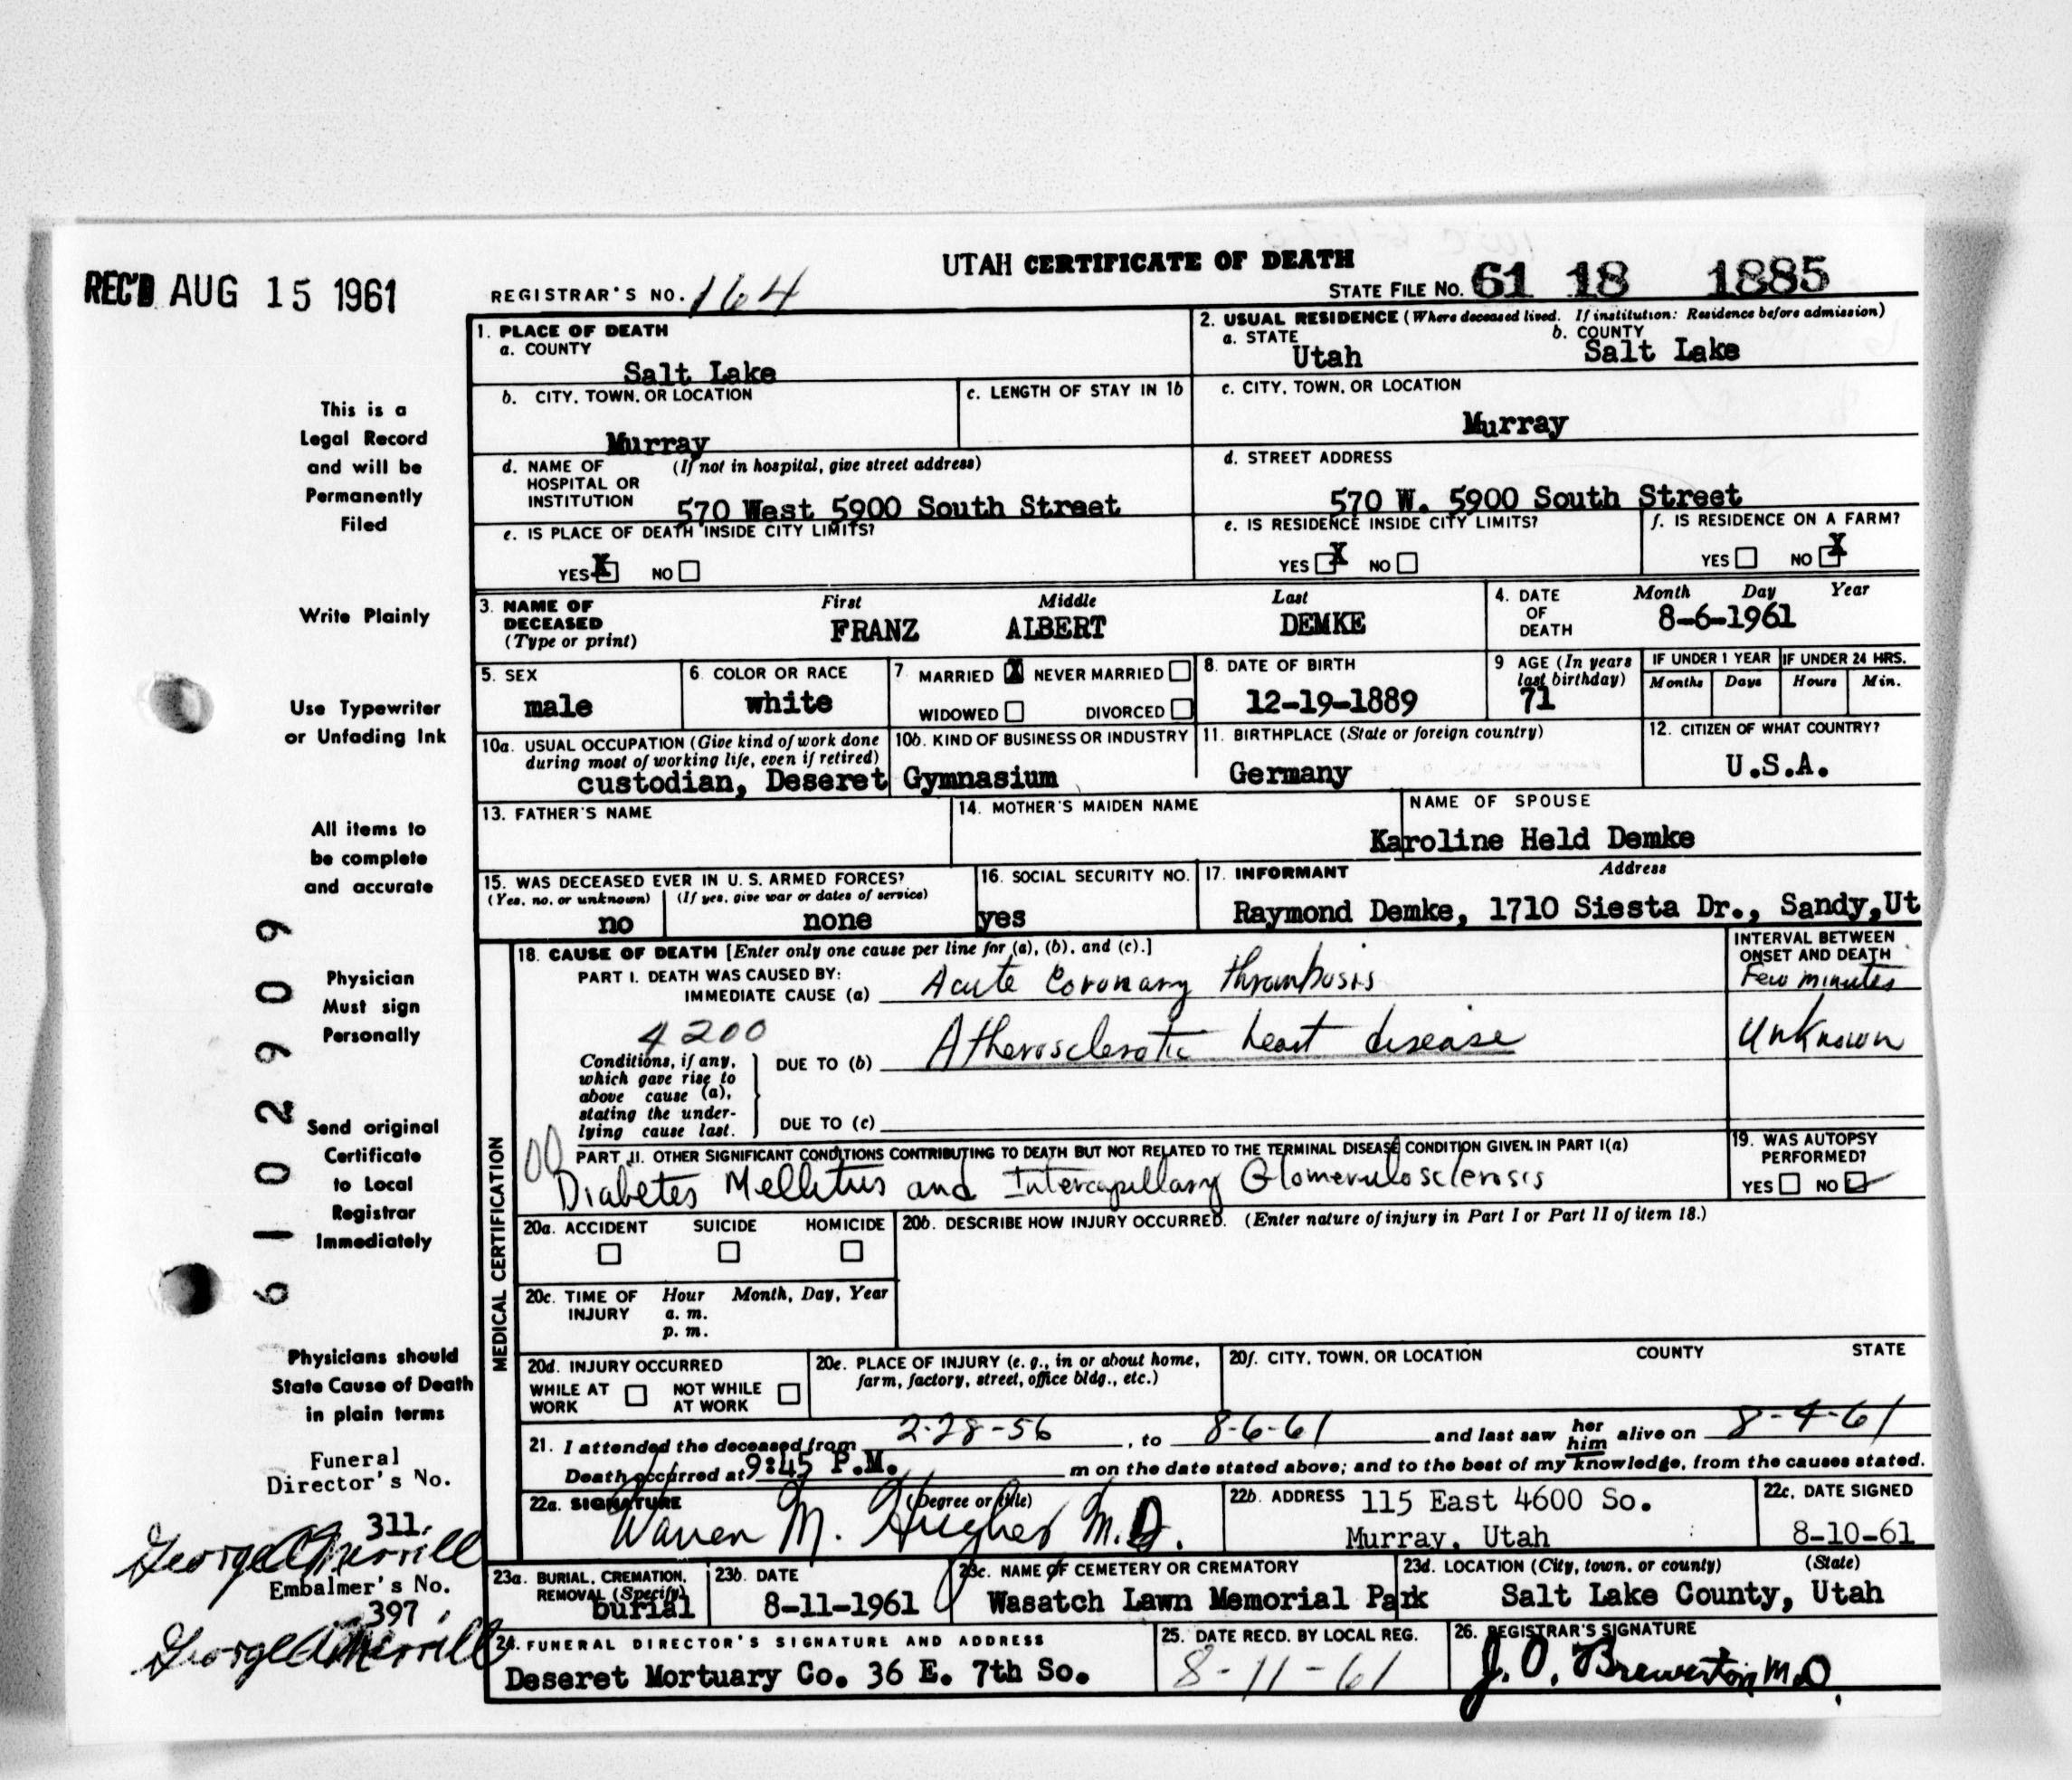 UTAH CERTIFICATE OF DEATH
REC'D AUG 15 1961
REGISTRAR'S NO. 164
STATE FILE No. 61 18 1885
This is a
Legal Record
and will be
Permanently
Filed
Write Plainly
Use Typewriter
or Unfading Ink
All items to
be complete
and accurate
Physician
Must sign
Personally
Send original
Certificate
to Local
Registrar
Immediately
Physicians should
State Cause of Death
in plain terms
Funeral
Director's No.
311.
George A Merrill
Embalmer's No.
397.
George A Merrill
6 1 0 2 9 0 9
1. PLACE OF DEATH
a. COUNTY
Salt Lake
b. CITY, TOWN, OR LOCATION
Murray
c. LENGTH OF STAY IN 1b
d. NAME OF (If not in hospital, give street address)
HOSPITAL OR
INSTITUTION 570 West 5900 South Street
e. IS PLACE OF DEATH INSIDE CITY LIMITS?
YES X NO
2. USUAL RESIDENCE (Where deceased lived. If institution: Residence before admission)
a. STATE Utah
b. COUNTY Salt Lake
c. CITY, TOWN, OR LOCATION
Murray
d. STREET ADDRESS
570 W. 5900 South Street
e. IS RESIDENCE INSIDE CITY LIMITS?
YES X NO
f. IS RESIDENCE ON A FARM?
YES NO X
3. NAME OF DECEASED (Type or print)
First Middle Last
FRANZ ALBERT DEMKE
4. DATE OF DEATH
Month Day Year
8-6-1961
5. SEX
male
6. COLOR OR RACE
white
7. MARRIED X NEVER MARRIED
WIDOWED DIVORCED
8. DATE OF BIRTH
12-19-1889
9 AGE (In years last birthday)
71
IF UNDER 1 YEAR
Months Days
IF UNDER 24 HRS.
Hours Min.
10a. USUAL OCCUPATION (Give kind of work done
during most of working life, even if retired)
10b. KIND OF BUSINESS OR INDUSTRY
custodian, Deseret Gymnasium
11. BIRTHPLACE (State or foreign country)
Germany
12. CITIZEN OF WHAT COUNTRY?
U.S.A.
13. FATHER'S NAME
14. MOTHER'S MAIDEN NAME
NAME OF SPOUSE
Karoline Held Demke
15. WAS DECEASED EVER IN U. S. ARMED FORCES?
(Yes, no, or unknown) (If yes, give war or dates of service)
no none
16. SOCIAL SECURITY NO.
yes
17. INFORMANT Address
Raymond Demke, 1710 Siesta Dr., Sandy,Ut
MEDICAL CERTIFICATION
18. CAUSE OF DEATH [Enter only one cause per line for (a), (b), and (c).]
PART I. DEATH WAS CAUSED BY:
IMMEDIATE CAUSE (a) Acute Coronary Thrombosis
INTERVAL BETWEEN
ONSET AND DEATH
Few minutes
4200
Conditions, if any,
which gave rise to
above cause (a),
stating the under-
lying cause last.
DUE TO (b) Atherosclerotic heart disease
Unknown
DUE TO (c)
PART II. OTHER SIGNIFICANT CONDITIONS CONTRIBUTING TO DEATH BUT NOT RELATED TO THE TERMINAL DISEASE CONDITION GIVEN IN PART I(a)
Diabetes Mellitus and Intercapillary Glomerulosclerosis
19. WAS AUTOPSY
PERFORMED?
YES NO ✓
20a. ACCIDENT SUICIDE HOMICIDE
20b. DESCRIBE HOW INJURY OCCURRED. (Enter nature of injury in Part I or Part II of item 18.)
20c. TIME OF INJURY Hour Month, Day, Year
a. m.
p. m.
20d. INJURY OCCURRED
WHILE AT WORK NOT WHILE AT WORK
20e. PLACE OF INJURY (e. g., in or about home,
farm, factory, street, office bldg., etc.)
20f. CITY, TOWN, OR LOCATION COUNTY STATE
21. I attended the deceased from 2-28-56, to 8-6-61 and last saw her him alive on 8-4-61
Death occurred at 9:45 P.M. m on the date stated above; and to the best of my knowledge, from the causes stated.
22a. SIGNATURE (Degree or title)
Warren M. Hughes M.D.
22b. ADDRESS 115 East 4600 So.
Murray, Utah
22c. DATE SIGNED
8-10-61
23a. BURIAL, CREMATION,
REMOVAL (Specify)
burial
23b. DATE
8-11-1961
23c. NAME OF CEMETERY OR CREMATORY
Wasatch Lawn Memorial Park
23d. LOCATION (City, town, or county) (State)
Salt Lake County, Utah
24. FUNERAL DIRECTOR'S SIGNATURE AND ADDRESS
Deseret Mortuary Co. 36 E. 7th So.
25. DATE RECD. BY LOCAL REG.
8-11-61
26. REGISTRAR'S SIGNATURE
J. O. Brewerton M.D.